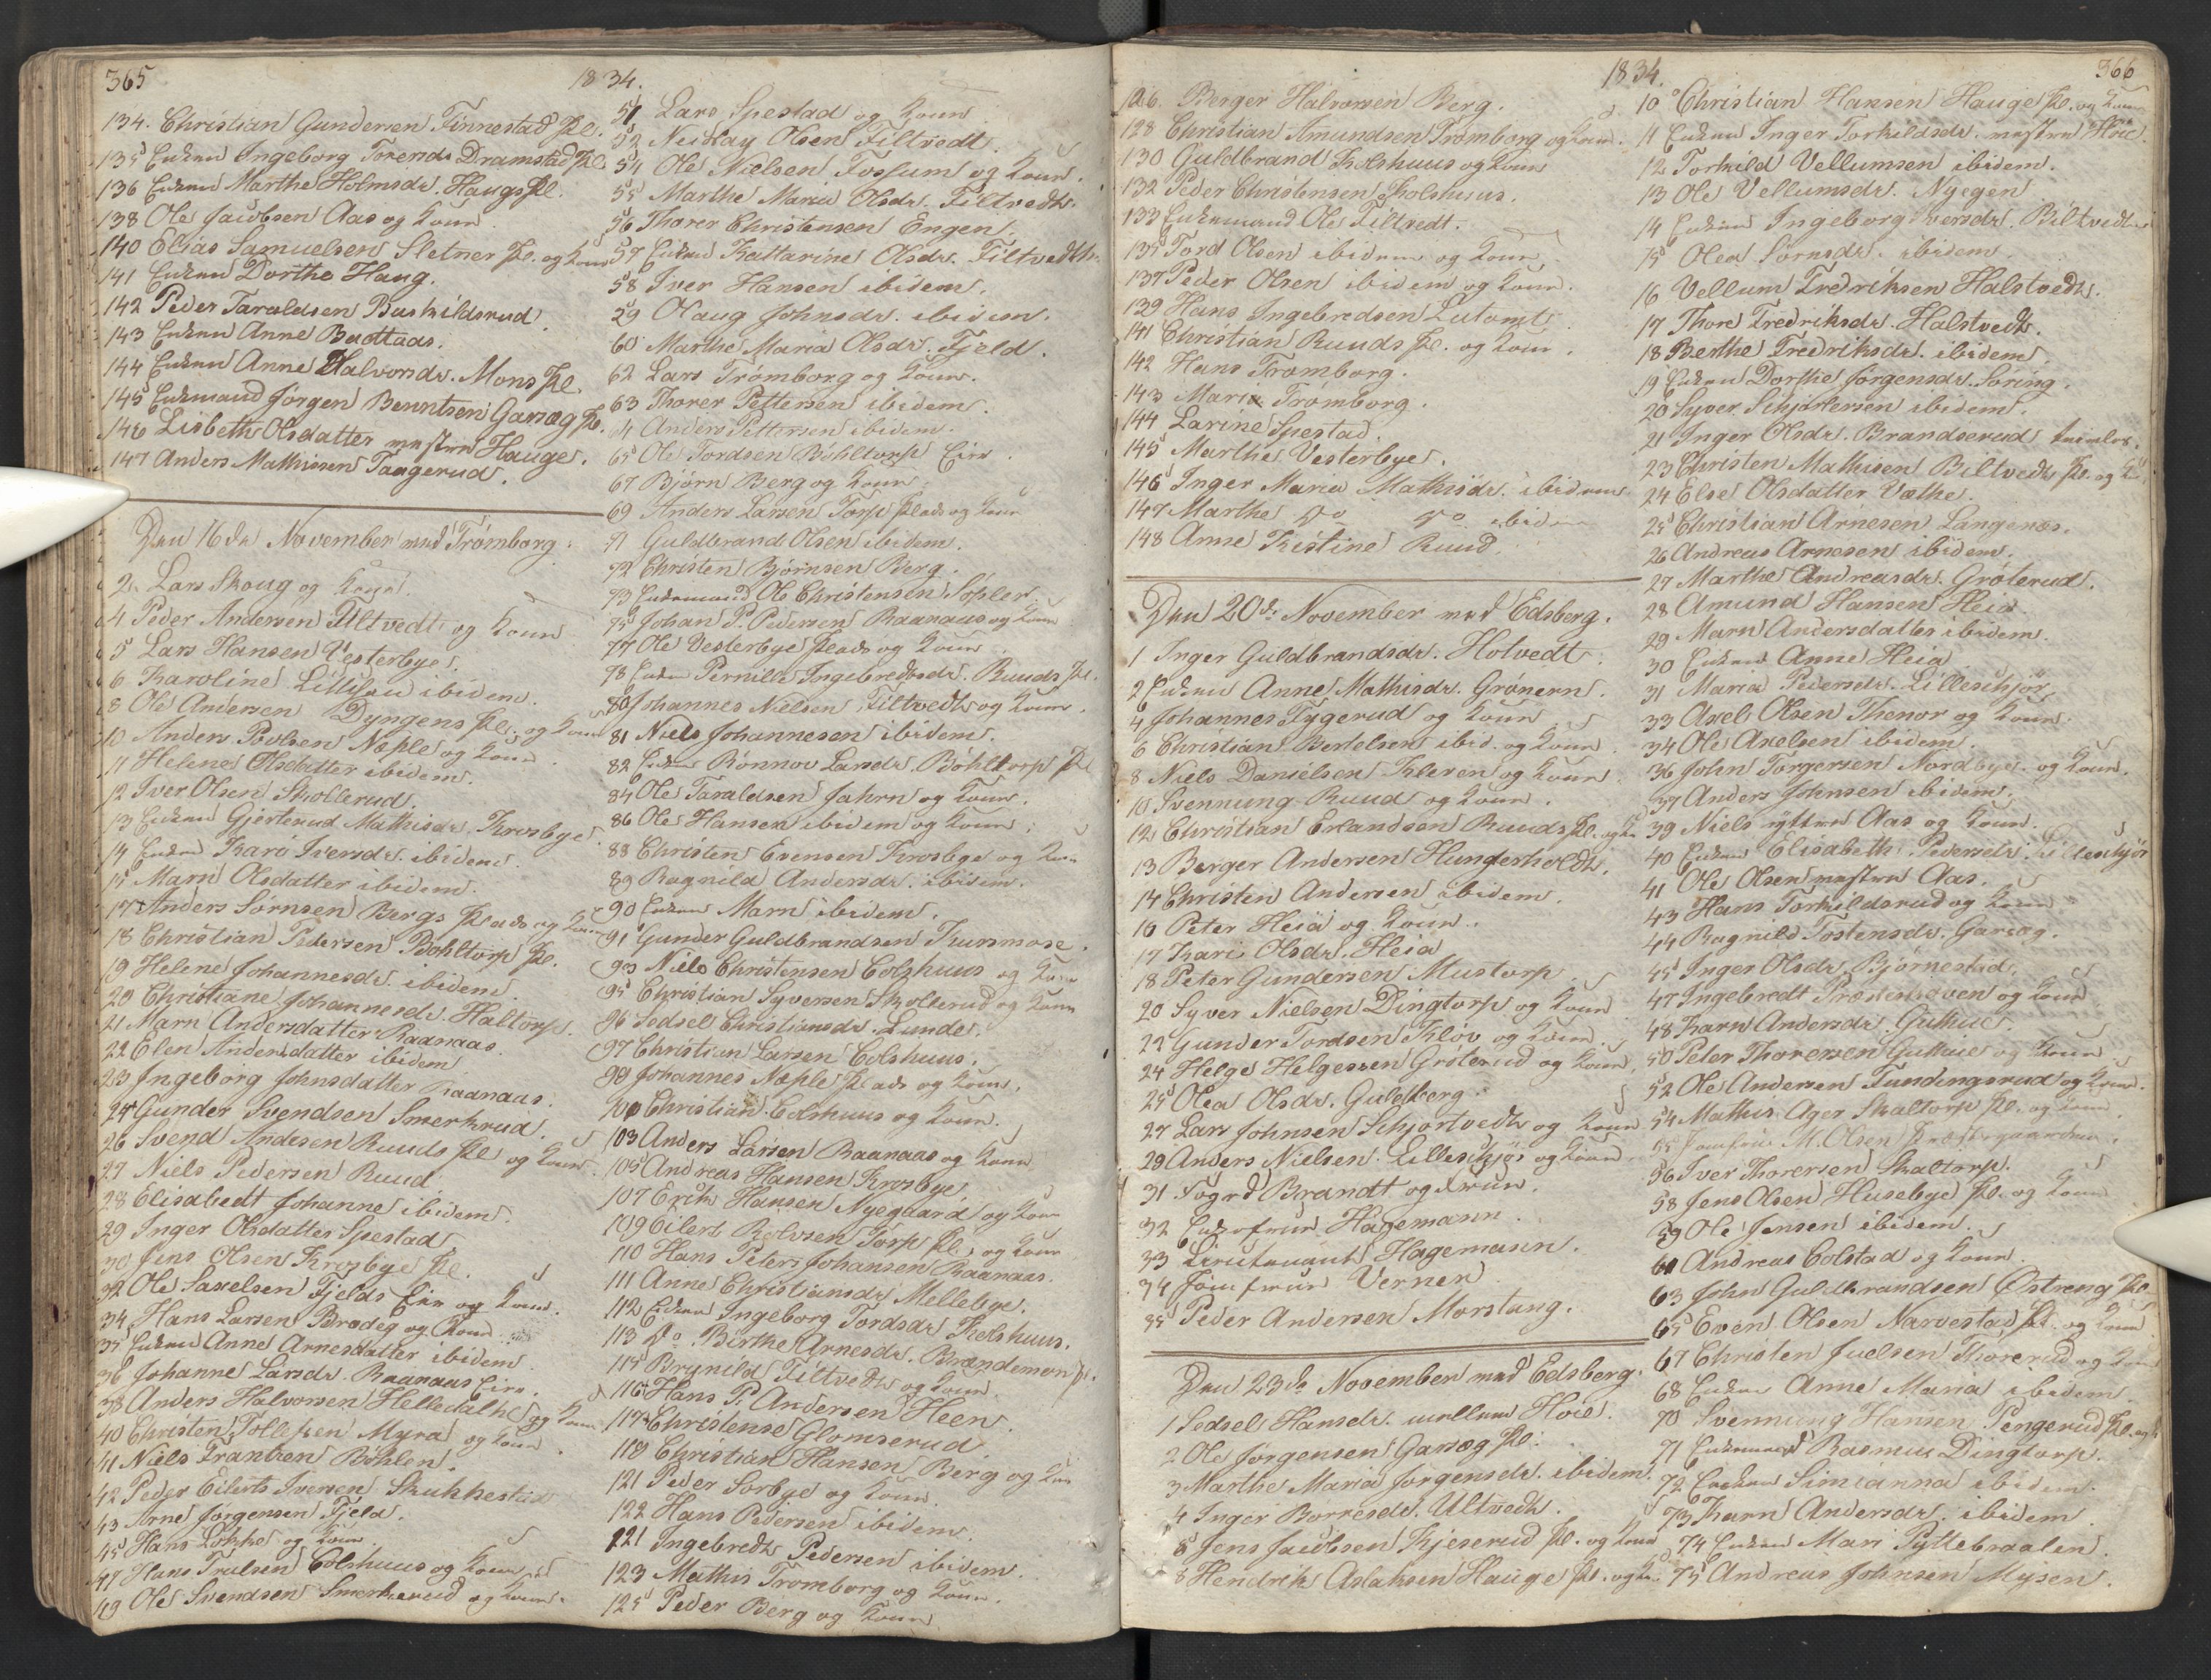 365
1834.
134. Christian Gundersen Finnestad Pl.
135 Enken Ingeborg Toresdr Dramstad Pl.
136 Enken Marthe Holmsdr. Haugs Pl.
138 Ole Jacobsen Aas og Kone
140 Elias Samuelsen Sletner Pl. og Kone
141 Enken Dorthe Haug.
142 Peder Taraldsen Buskildsrud.
143 Enken Anne
144 Enken Anne Halvorsdr. Mons Pl.
145 Enkemand Jørgen Berntsen Garsæg Pl.
146 Lisbeth Olsdatter mestre Hauge.
147 Anders Mathissen Taagerud.
Den 16de November ved Trømborg.
2. Lars Skoug og Kone.
4 Peder Andersen Ultvedt og Kone
5 Lars Hansen Vesterbye.
6 Karoline ibidem.
8 Ole Andersen Dyngens Pl. og Kone
10 Anders Povlsen Næple og Kone.
11 Helene Olsdatter ibidem.
12 Iver Olsen Skollerud.
13 Enken Gjerterud Mathisdr. Krosbye.
14 Enken Kari Iversdr. ibidem.
15 Marn Olsdatter ibidem.
17 Anders Sørnsen Bergs Plads og Kone
18 Christian Pedersen Bøhltorp Pl.
19 Helene Johannesdr. ibidem.
20 Christiane Johannesdr. Haltorp.
21 Marn Andersdatter Raanaas.
22 Elen Andersdatter ibidem
23 Ingeborg Johnsdatter Raanaas.
24 Gunder Svendsen Smerkrud.
26 Svend Andersen Ruuds Pl. og Kone.
27 Niels Pedersen Ruud
28 Elisabedt Johanne ibidem.
29 Inger Olsdatter Spestad
30 Jens Olsen Krosbye Pl.
32 Ole Saxelsen Fjelds Eie og Kone.
34 Hans Larsen Brødeg og Kone
35 Enken Anne Arnesdatter ibidem
36 Johanne Larsdr. Raanaas Eie.
38 Anders Halvorsen Helledalhe og Kone
40 Christen Tollefsen Myra og Kone.
41 Niels Frantsen Bøhlen.
42 Peder Eilerts Iversen Skukkestad
43 Arne Jørgensen Fjeld.
45 Hans Løkke og Kone
47 Hans Trulsen Colshuus og Kone
49 Ole Svendsen Smerkerud og Kone.
51 Lars Spestad og Kone
52 Nicolay Olsen Tiltvedt.
54 Ole Nielsen Fossum og Kone.
55 Marthe Maria Olsdr. Tiltvedt.
56 Thorer Christensen Engen.
57 Enken Kattarine Olsdr. Tiltvedt.
58 Iver Hansen ibidem.
59 Olaug Johnsdr. ibidem.
60 Marthe Maria Olsdr. Fjeld.
62 Lars Trømborg og Kone.
63 Thorer Pettersen ibidem.
64 Anders Pettersen ibidem.
65 Ole Tordsen Bøhltorp Eie.
67 Bjørn Berg og Kone
69 Anders Larsen Torp Plads og Kone
71 Guldbrand Olsen ibidem.
72 Christen Bjørnsen Berg.
73 Enkemand Ole Christensen Søpler.
75 Johan P. Pedersen Raanaas og Kone
77 Ole Vesterbye Plads og Kone
78 Enken Pernille Ingebredtsdr. Ruuds Pl.
80 Johannes Nielsen Tiltvedt og Kone.
81 Niels Johannesen ibidem.
82 Enken Rønnov Larsdr. Bøhltorp Pl
84 Ole Taraldsen Jahrn og Kone.
86 Ole Hansen ibidem og Kone
88 Christen Evensen Krosbye og Kone
89 Ragnild Andersdr. ibidem.
90 Enken Marn ibidem.
91 Gunder Guldbrandsen Kursmose.
93 Niels Christensen Colshuus og Kone
95 Christian Syversen Skollerud og Kone
96 Sedsel Christiansdr. Lunde.
97 Christian Larsen Colshuus.
99 Johannes Næple Plads og Kone.
101 Christian Colshuus og Kone.
103 Anders Larsen Raanaas og Kone
105 Andreas Hansen Krosbye
107 Erik Hansen Nyegaard og Kone
109 Eilert Rolvsen Torp Pl. og Kone
110 Hans Peter Johansen Raanaas.
111 Anne Christiansdr Mellebye.
112 Enken Ingeborg Tordsdr Kolshuus.
113 Do Birthe Arnesdr. Brændemoen Pl.
115 Brynild Tiltvedt og Kone.
116 Hans P. Andersen Heen
117 Christense Glomserud
119 Christian Hansen Berg og Kone
121 Peder Sørbye og Kone.
122 Hans Pedersen ibidem.
121 Ingebredt Pedersen ibidem.
123 Mathis Tromborg og Kone.
125 Peder Berg og Kone
1834.
366
126. Berger Halvorsen Berg.
128 Christian Amundsen Trømborg og Kone.
130 Guldbrand Kolshuus og Kone
132 Peder Christensen Kolshuus.
133 Enkemand Ole Tiltvedt.
135 Tord Olsen ibidem og Kone
137 Peder Olsen ibidem og Kone.
139 Hans Ingebredsen Lutomt
141 Christian Ruuds Pl. og Kone.
142 Hans Trømborg.
143 Maria Trømborg.
144 Larine Spestad.
145 Marthe Vesterbye.
146 Inger Maria Mathisdr. ibidem
147 Marthe Do Do ibidem
148 Anne Kistine Ruud.
Den 20de November ved Edsberg.
1 Inger Guldbrandsdr. Hotvedt.
2 Enken Anne Mathisdr. Grønern.
4 Johannes Tygerud og Kone
6 Christian Bertelsen ibid. og Kone
8 Niels Danielsen Kleven og Kone
10 Svennung Ruud og Kone.
12 Christian Erlandsen Ruuds Pl. og Kone
13 Berger Andersen Hungerholdt.
14 Christen Andersen ibidem.
16 Peter Heia og Kone.
17 Kari Olsdr. Heia
18 Peter Gundersen Mustorp
20 Syver Nielsen Dingtorp og Kone
22 Gunder Tordsen Kløv og Kone
24 Helge Helgessen Grøterud og Kone
25 Olea Olsdr. Guleberg.
27 Lars Johnsen Schjørtvedt og Kone
29 Anders Nielsen Lilleschjør og Kone
31 Fogrd Brandt og Frue.
32 Enkefrue Hagemann.
33 Lieutenant Hagemann.
34 Jomfrue Verner
35 Peder Andersen Morstang.
Den 23de November ved Edsberg.
1 Sedsel Hansdr. mellum Hvie.
2 Ole Jørgensen Garsæg Pl.
3 Marthe Maria Jørgensdr. ibidem.
4 Inger Børresdr. Ultvedt.
6 Jens Jacobsen Kjeserud Pl. og Kone
8 Hendrik Aslaksen Hauge Pl. og Ko.
10 Christian Hansen Hauge Pl. og Kone
11 Enken Inger Torkildsdr. mestre Hvie.
12 Torkild Vellumsen ibidem.
13 Ole Vellumsdr. Nyegen
14 Enken Ingeborg Iversdr. Biltvedt
15 Olea Sørnsdr. ibidem.
16 Vellum Fredriksen Halstvedt.
17 Thore Fredriksdr. Halstvedt.
18 Berthe Fredriksdr. ibidem.
19 Enken Dorthe Jørgensdr. Søring.
20 Syver Schjørtersen ibidem.
21 Inger Olsdr. Brandserud
23 Christen Mathisen Biltvedt Pl. og K.
24 Else Olsdatter Væthe.
25 Christian Arnesen Langenæs.
26 Andreas Arnesen ibidem.
27 Marthe Andreasdr. Grøterud.
28 Amund Hansen Heia.
29 Marn Andersdatter ibidem.
30 Enken Anne Heia
31 Maria Pedersdr. Lilleschjør
33 Axel Olsen Thenor og Kone.
34 Ole Axelsen ibidem.
36 John Torgersen Nordbye og Kone.
37 Anders Johnsen ibidem.
39 Niels Aas og Kone.
40 Enken Elisabeth Pedersdr. Lilleschjør
41 Ole Olsen mestre Aas.
43 Hans Torkildsrud og Kone
44 Ragnild Tostensdr. Garsæg.
45 Inger Olsdr. Bjørnestad.
47 Ingebredt Præstehaven og Kone
48 Karn Andersdr. Guthue.
50 Peter Thoresen Guthue og Kone
52 Ole Andersen Tundingsrud og Kone.
54 Mathis Ager Skaltorp Pl. og Kone.
55 Jomfrue M. Olsen Præstegaarden.
56 Iver Thorersen Skaltorp.
58 Jens Olsen Husebye Pl. og Kone
59 Ole Jensen ibidem.
61 Andreas Colstad og Kone
63 John Guldbrandsen Østreng Pl.
65 Even Olsen Narvestad Pl. og Kone
67 Christen Juelsen Thorerud og Kone
68 Enken Anne Maria ibidem.
70 Svennung Hansen Pengerud Pl. og K
71 Enkemand Rasmus Dingtorp.
72 Enken Simianna ibidem.
73 Karn Andersdr. ibidem
74 Enken Mari Pyttebraaten.
75 Andreas Johnsen Mysen.